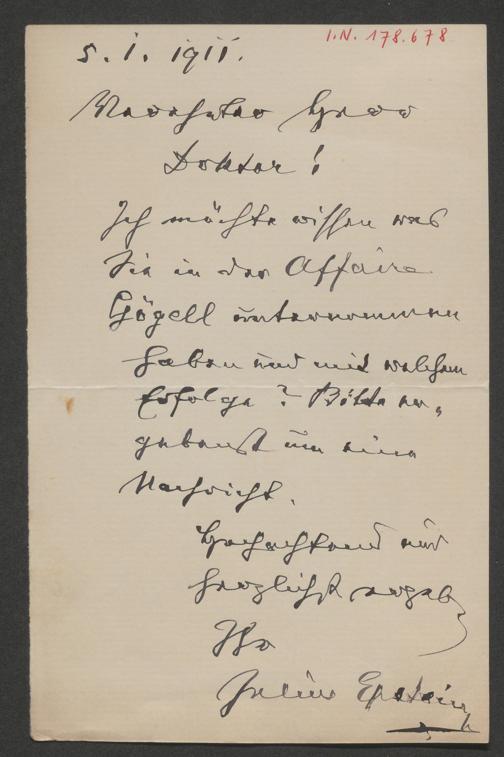 I.N. 178.678
5. I. 1911.
Verehrter Herr
Doktor!
Ich möchte wissen was
Sie in der Affaire
Gögell unternommen
haben und mit welchem
Erfolge? Bitte er-
gebenst um eine
Nachricht.
Hochachtend und
herzlichst ergeb
Ihr
Julius Epstein